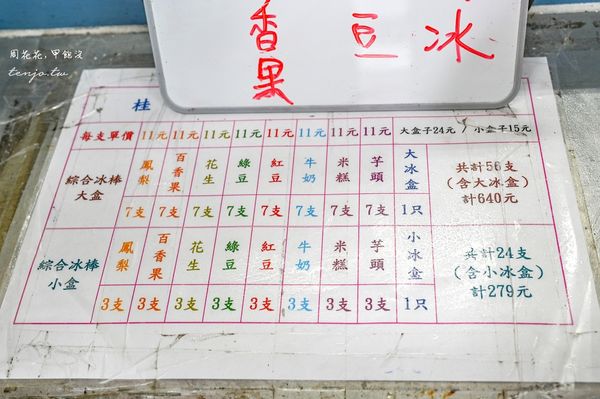 周花花,甲飽沒
tenjo.tw
香果 豆 冰
桂
每支單價 11元 11元 11元 11元 11元 11元 11元 11元 大盒子24元 / 小盒子15元
綜合冰棒大盒 鳳梨 百香果 花生 綠豆 紅豆 牛奶 米糕 芋頭 大冰盒 共計56支(含大冰盒)計640元
7支 7支 7支 7支 7支 7支 7支 7支 1只
綜合冰棒小盒 鳳梨 百香果 花生 綠豆 紅豆 牛奶 米糕 芋頭 小冰盒 共計24支(含小冰盒)計279元
3支 3支 3支 3支 3支 3支 3支 3支 1只